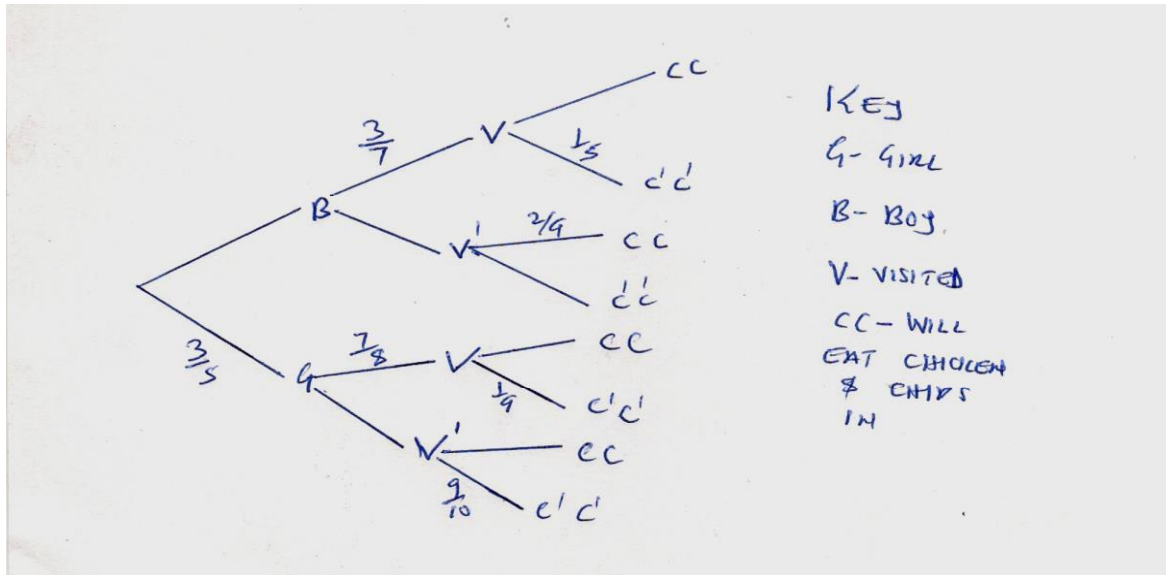 CC
3/7
V
1/5
C'C'
B
2/9
V'
CC
C'C'
3/5
7/8
V
CC
G
1/9
C'C'
V'
CC
9/10
C'C'
KEY
G- GIRL
B- BOY.
V- VISITED
CC- WILL
EAT CHICKEN
& CHIPS
IN